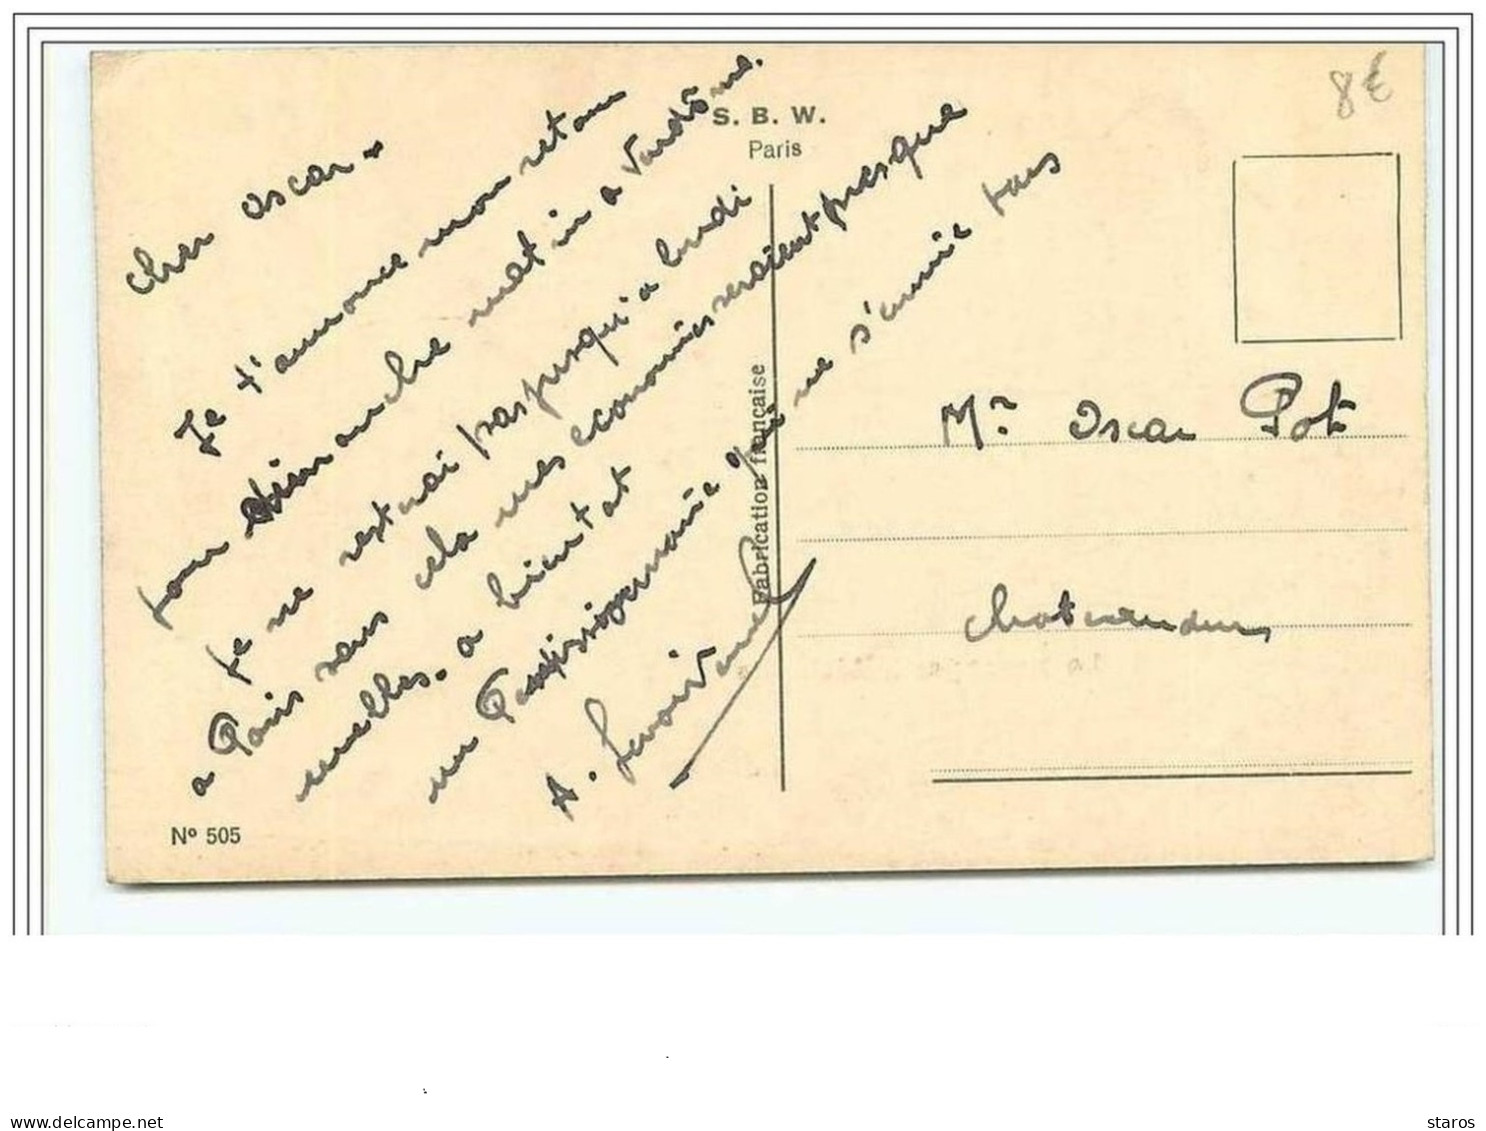 S. B. W.
Paris
8€
Cher Oscar
Je t'annonce mon retour
pour dimanche matin a Vandôme.
Je ne resterai pas jusqu'a lundi
a Paris sans cela mes economies seraient presque
nulles. a bientot
un Parisien qui ne s'ennuie pas
A.
Fabrication française
Mr. Oscar Pot
Chateaudun
Nº 505
delcampe.net
staros